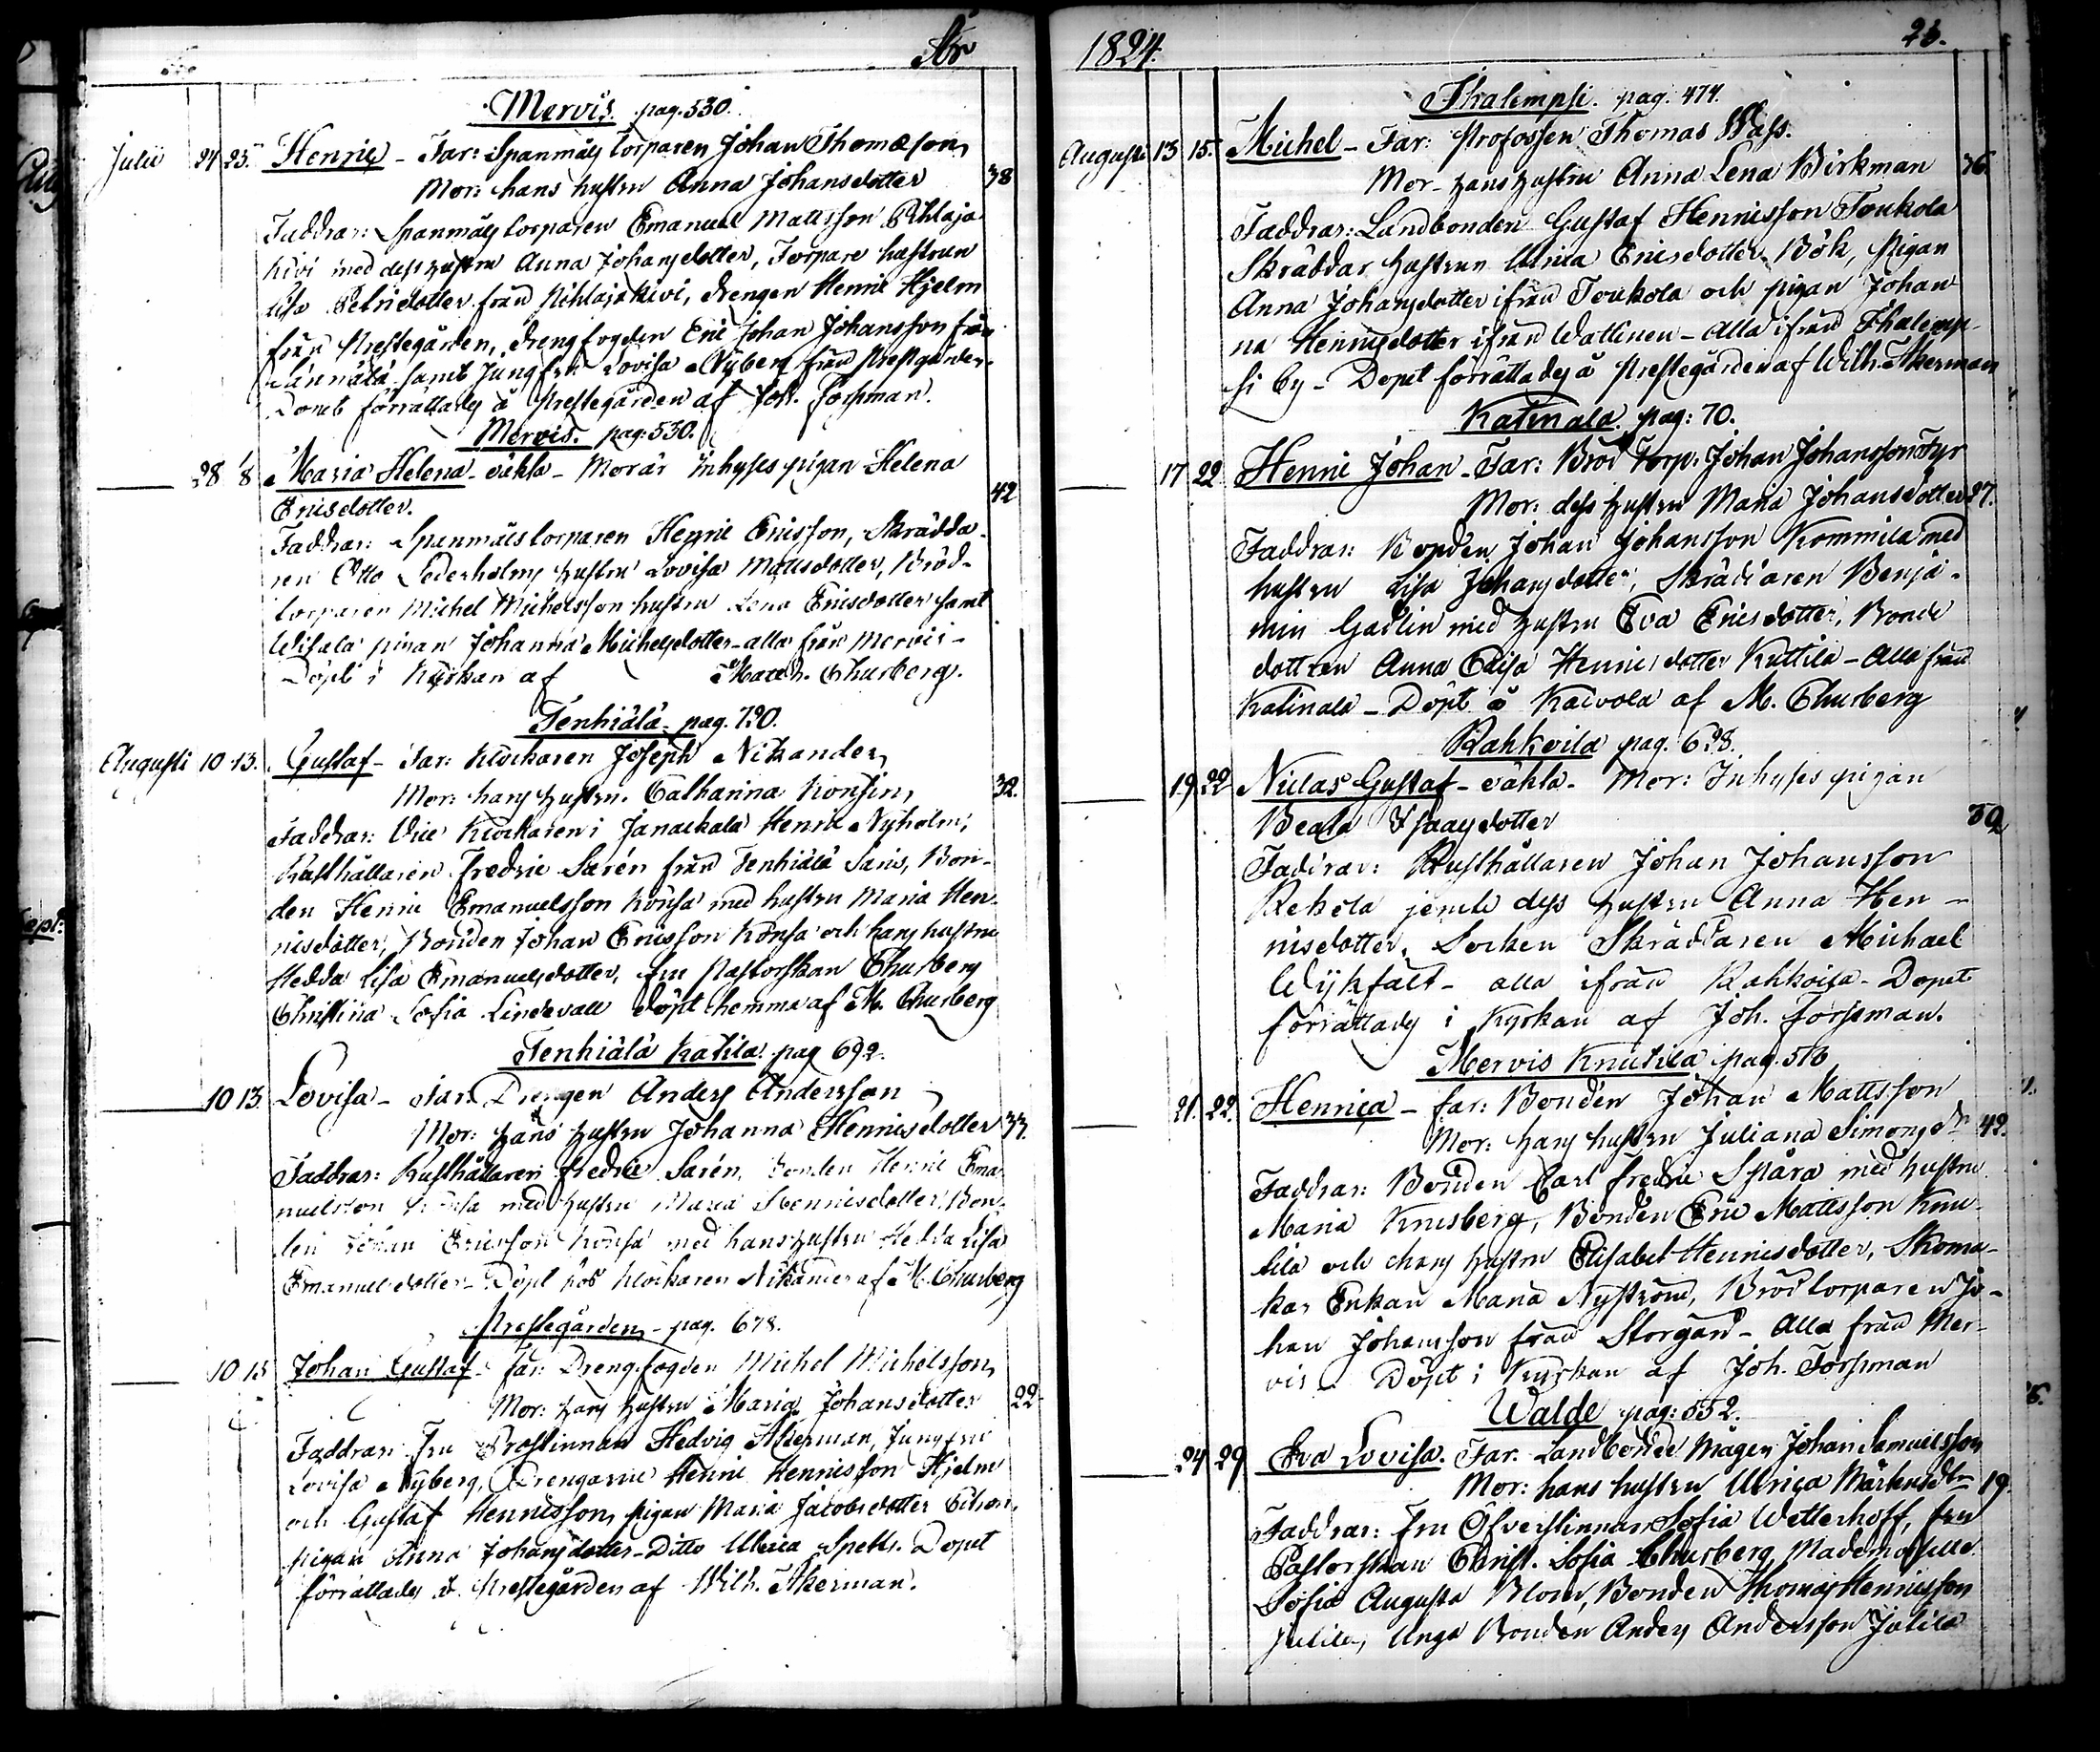 År
Mervis. pag. 530.
Julii 24 25. Henric - Far: Spanmåls torparen Johan Thomæson,
Mor: hans hustru Anna Johansdotter 38
Faddrar: Spanmåls torparen Emanuel Mattsson Pihlaja
kivi med dess hustru Anna Johansdotter, Torpare hustrun
Lisa Petridotter från Pihlajakivi, drengen Henric Hjelm
från Prestegården, drengfogden Eric Johan Johansson från
samt Jungfru Lovisa Nyberg från Prestgården.
Dopet förrättades å Prestegården af Joh. Forsman.
Mervis. pag: 530.
28 8 Maria Helena - oäkta - Mor är Inhyses pigan Helena
Ericsdotter. 42
Faddrar: Spanmåls torparen Henric Ericsson, Skrädda-
ren Otto Cederholms hustru Lovisa Mattsdotter, Bröd-
torparen Michel Michelsson hustru Lena Ericsdotter samt
pigan Johanna Michelsdotter - alla från Mervis -
Döpt i Kyrkan af Math. Churberg.
Tenhiälä - pag. 790.
Augusti 10 13. Gustaf - Far: Klockaren Joseph Nikander,
Mor: hans hustru. Catharina Konsin, 32.
Faddrar: Vice Klockaren i Janackala Henric Nyholm,
Rusthållaren Fredric Sarén från Tenhiälä Saris, Bon-
den Henric Emanuelsson Könsä med hustru Maria Hen-
ricsdotter, Bonden Johan Ericsson Könsä och hans hustru
Hedda Lisa Emanuelsdotter, fru Pastorskan Churberg
Christina Sofia Lindevall döpt hemma af M. Churberg
Tenhiälä Katila. pag 692.
10 13. Lovisa - Far: Drengen Anders Andersson
Mor: hans hustru Johanna Henricsdotter 33.
Faddrar: Rusthållaren Fredric Sarén, Bonden Henric Ema-
nuelsson Könsä med hustru Maria Henricsdotter, Bon-
den Johan Ericsson Könsä med hans hustru Hedda Lisa
Emanuelsdotter - Döpt hos Klockaren Nikander af M. Churberg
Prestegården - pag. 678.
10 15 Johan Gustaf - far: Drengfogden Michel Michelsson,
Mor: hans hustru Maria Johansdotter 22
Faddrar: fru Prostinnan Hedvig Åkerman, Jungfru
Lovisa Nyberg, Drengarne Henric Henricsson Hjelm
och Gustaf Henricsson, pigan Maria Jacobsdotter
pigan Anna Johansdotter - Ditto Ulrica Spetts. Dopet
förrättades å Prestegården af Wilh. Åkerman.
1824. 26.
Thalempsi. pag. 474.
Augusti 13 15. Michel - Far: Profossen Thomas Wass.
Mor - hans hustru Anna Lena Birkman 36.
Faddrar: Landbonden Gustaf Henricsson Toukola
Skräddar hustrun Ulrica Ericsdotter Bök, pigan
Anna Johansdotter ifrån Toukola och pigan Johan
na Henricsdotter ifrån Wallinen - alla ifrån Thalemp-
si by - Dopet förrättades å Prestegården af Wilh. Åkerman
Katinala. pag: 70.
17 22 Henric Johan - Far: Bröd Torp. Johan Johansson Fyr
Mor: dess hustru Maria Johansdotter 27.
Faddrar: Bonden Johan Johansson Kommila med
hustru Lisa Johansdotter, Skräddaren Benja-
min Gadlin med hustru Eva Ericsdotter, Bonde
dottren Anna Caisa Henricsdotter Kuttila - Alla från
Katinala - Döpt å Kaivola af M. Churberg
Rahkoila pag. 628.
19 22 Niclas Gustaf - oäkta - Mor: Inhyses pigan
Beata Isaacsdotter 30
Faddrar: Rusthållaren Johan Johansson
Rekola jemte dess hustru Anna Hen-
ricsdotter, Socken Skräddaren Michael
Wijkfält - alla ifrån Rahkoila - Dopet
förrättades i Kyrkan af Joh. Forsman.
Mervis Knutila pag. 516
21. 22. Henrica - far: Bonden Johan Mattsson
Mor: hans hustru Juliana Simonsdr 42.
Faddrar: Bonden Carl Fredric Spåra med hustru
Maria Krusberg, Bonden Eric Mattsson Knu-
tila och hans hustru Elisabet Henricsdotter, Skoma-
kar Enkan Maria Nyström, Bröd torparen Jo-
han Johansson från Storgård - Alla från Mer-
vis - Döpt i Kyrkan af Joh. Forsman
Walde pag: 552.
24 29 Eva Lovisa. Far. Landbonde Mågen Johan Samuelsson
Mor: hans hustru Ulrica Markusdtr 19
Faddrar: Fru Öfverstinnan Sofia Wetterhoff, fru
Pastorskan Christ. Sofia Churberg, Mademoiselle
Sofia Augusta Blom, Bonden Thomas Henricsson
Jutila, Unga Bonden Anders Andersson Jutila